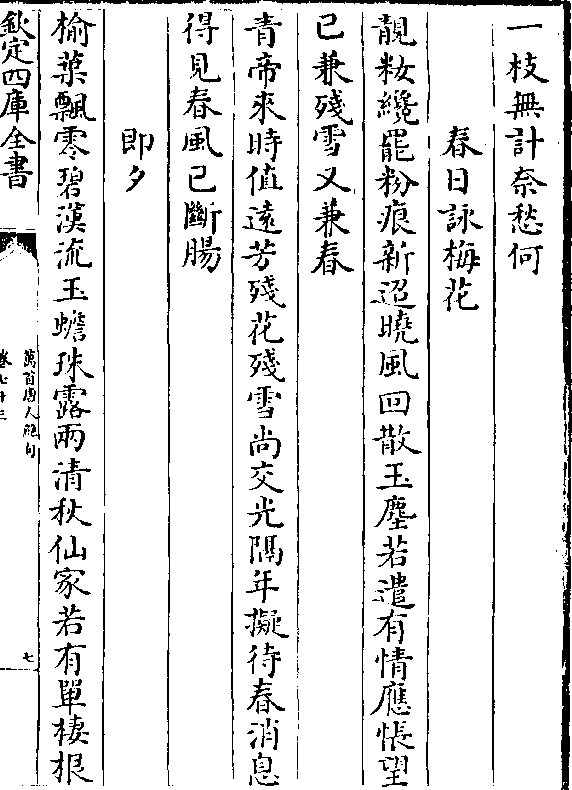 一枝無計奈愁何
春日詠梅花
靚粧纔罷粉痕新迢曉風回散玉塵若遣有情應悵望
已兼殘雪又兼春
青帝來時值遠芳殘花殘雪尚交光隔年擬待春消息
得見春風已斷腸
即夕
榆葉飄零碧漢流玉蟾珠露兩清秋仙家若有單棲恨
欽定四庫全書
萬首唐人絶句
卷七十三
七